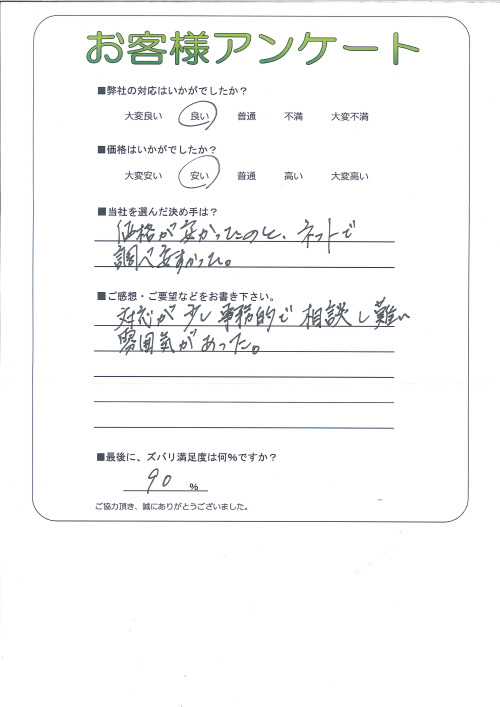 お客様アンケート
■弊社の対応はいかがでしたか？
大変良い 良い 普通 不満 大変不満
■価格はいかがでしたか？
大変安い 安い 普通 高い 大変高い
■当社を選んだ決め手は？
価格が安かったのと、ネットで
調べ安すかった。
■ご感想・ご要望などをお書き下さい。
対応が少し事務的で相談し難い
雰囲気があった。
■最後に、ズバリ満足度は何%ですか？
90 %
ご協力頂き、誠にありがとうございました。